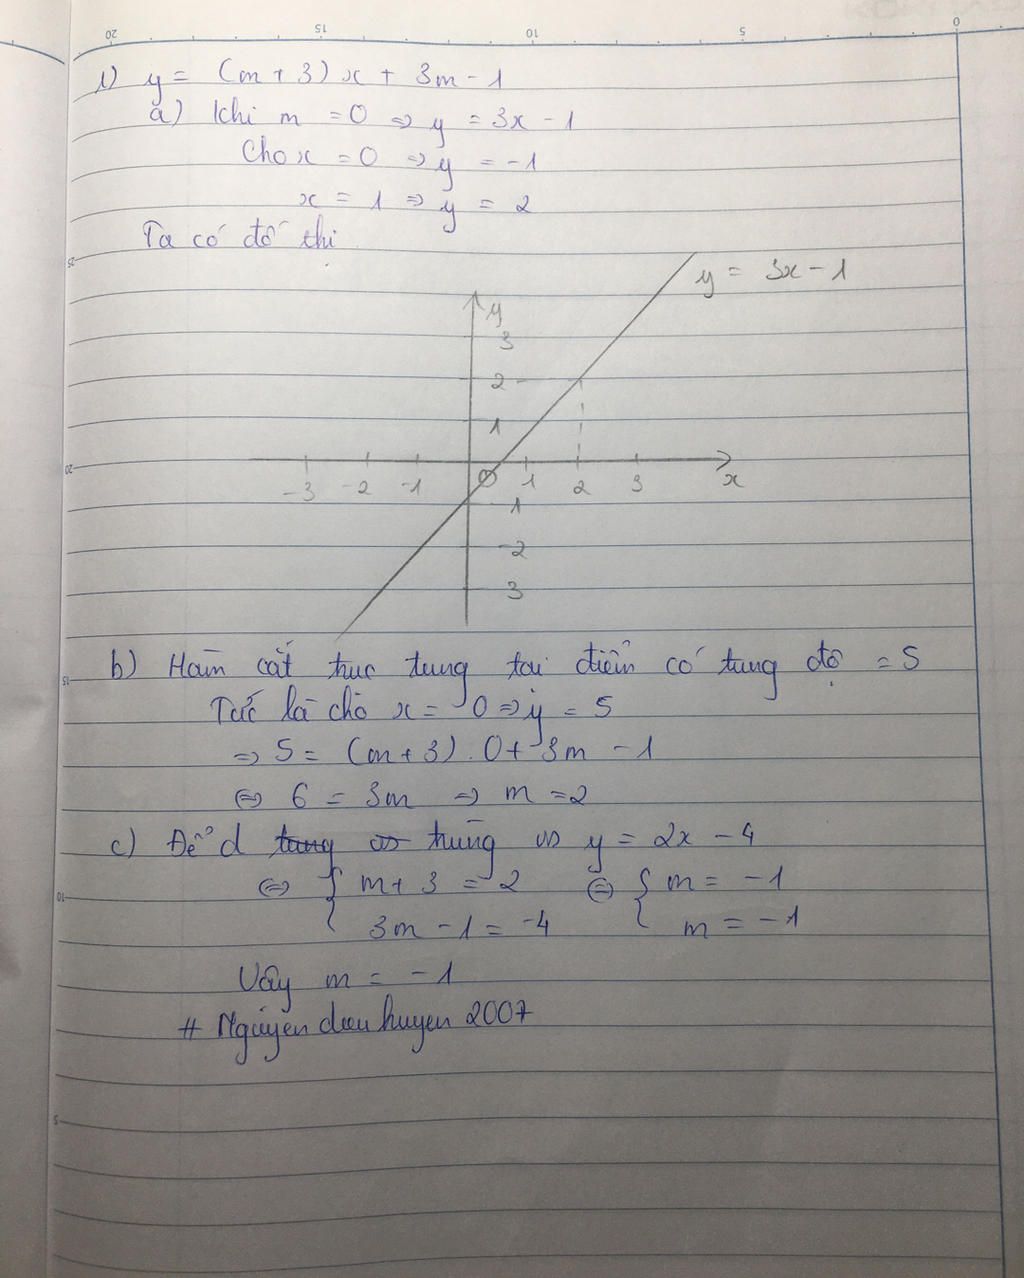 20 15 10 5 0
1) y = (m + 3) x + 3m - 1
a) Khi m = 0 => y = 3x - 1
Cho x = 0 => y = -1
x = 1 => y = 2
Ta có đồ thị
25
y = 3x - 1
y
3
2
1
20
-3 -2 -1 O 1 2 3 x
1
-2
3
b) Hàm cắt trục tung tại điểm có tung độ = 5
15
Tức là cho x = 0 => y = 5
=> 5 = (m + 3) . 0 + 3m - 1
<=> 6 = 3m => m = 2
c) Để d trùng vs y = 2x - 4
<=> { m + 3 = 2 <=> { m = -1
10
3m - 1 = -4 m = -1
Vậy m = -1
# Nguyen dieu huyen 2007
5